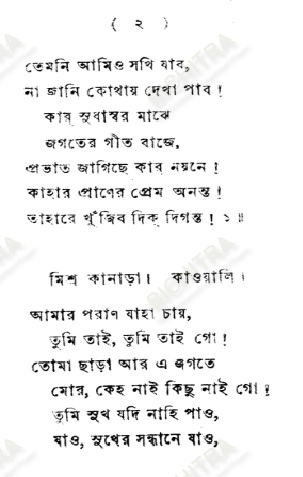 ( ২ )
তেমনি আমিও সখি যাব,
না জানি কোথায় দেখা পাব !
কার্ সুধাস্বর মাঝে
জগতের গীত বাজে,
প্রভাত জাগিছে কার্ নয়নে !
কাহার প্রাণের প্রেম অনন্ত !
তাহারে খুঁজিব দিক্ দিগন্ত ! ১ ॥
মিশ্র কানাড়া। কাওয়ালি।
আমার পরাণ যাহা চায়,
তুমি তাই, তুমি তাই গো !
তোমা ছাড়া আর এ জগতে
মোর, কেহ নাই কিছু নাই গো !
তুমি সুখ যদি নাহি পাও,
যাও, সুখের সন্ধানে যাও,